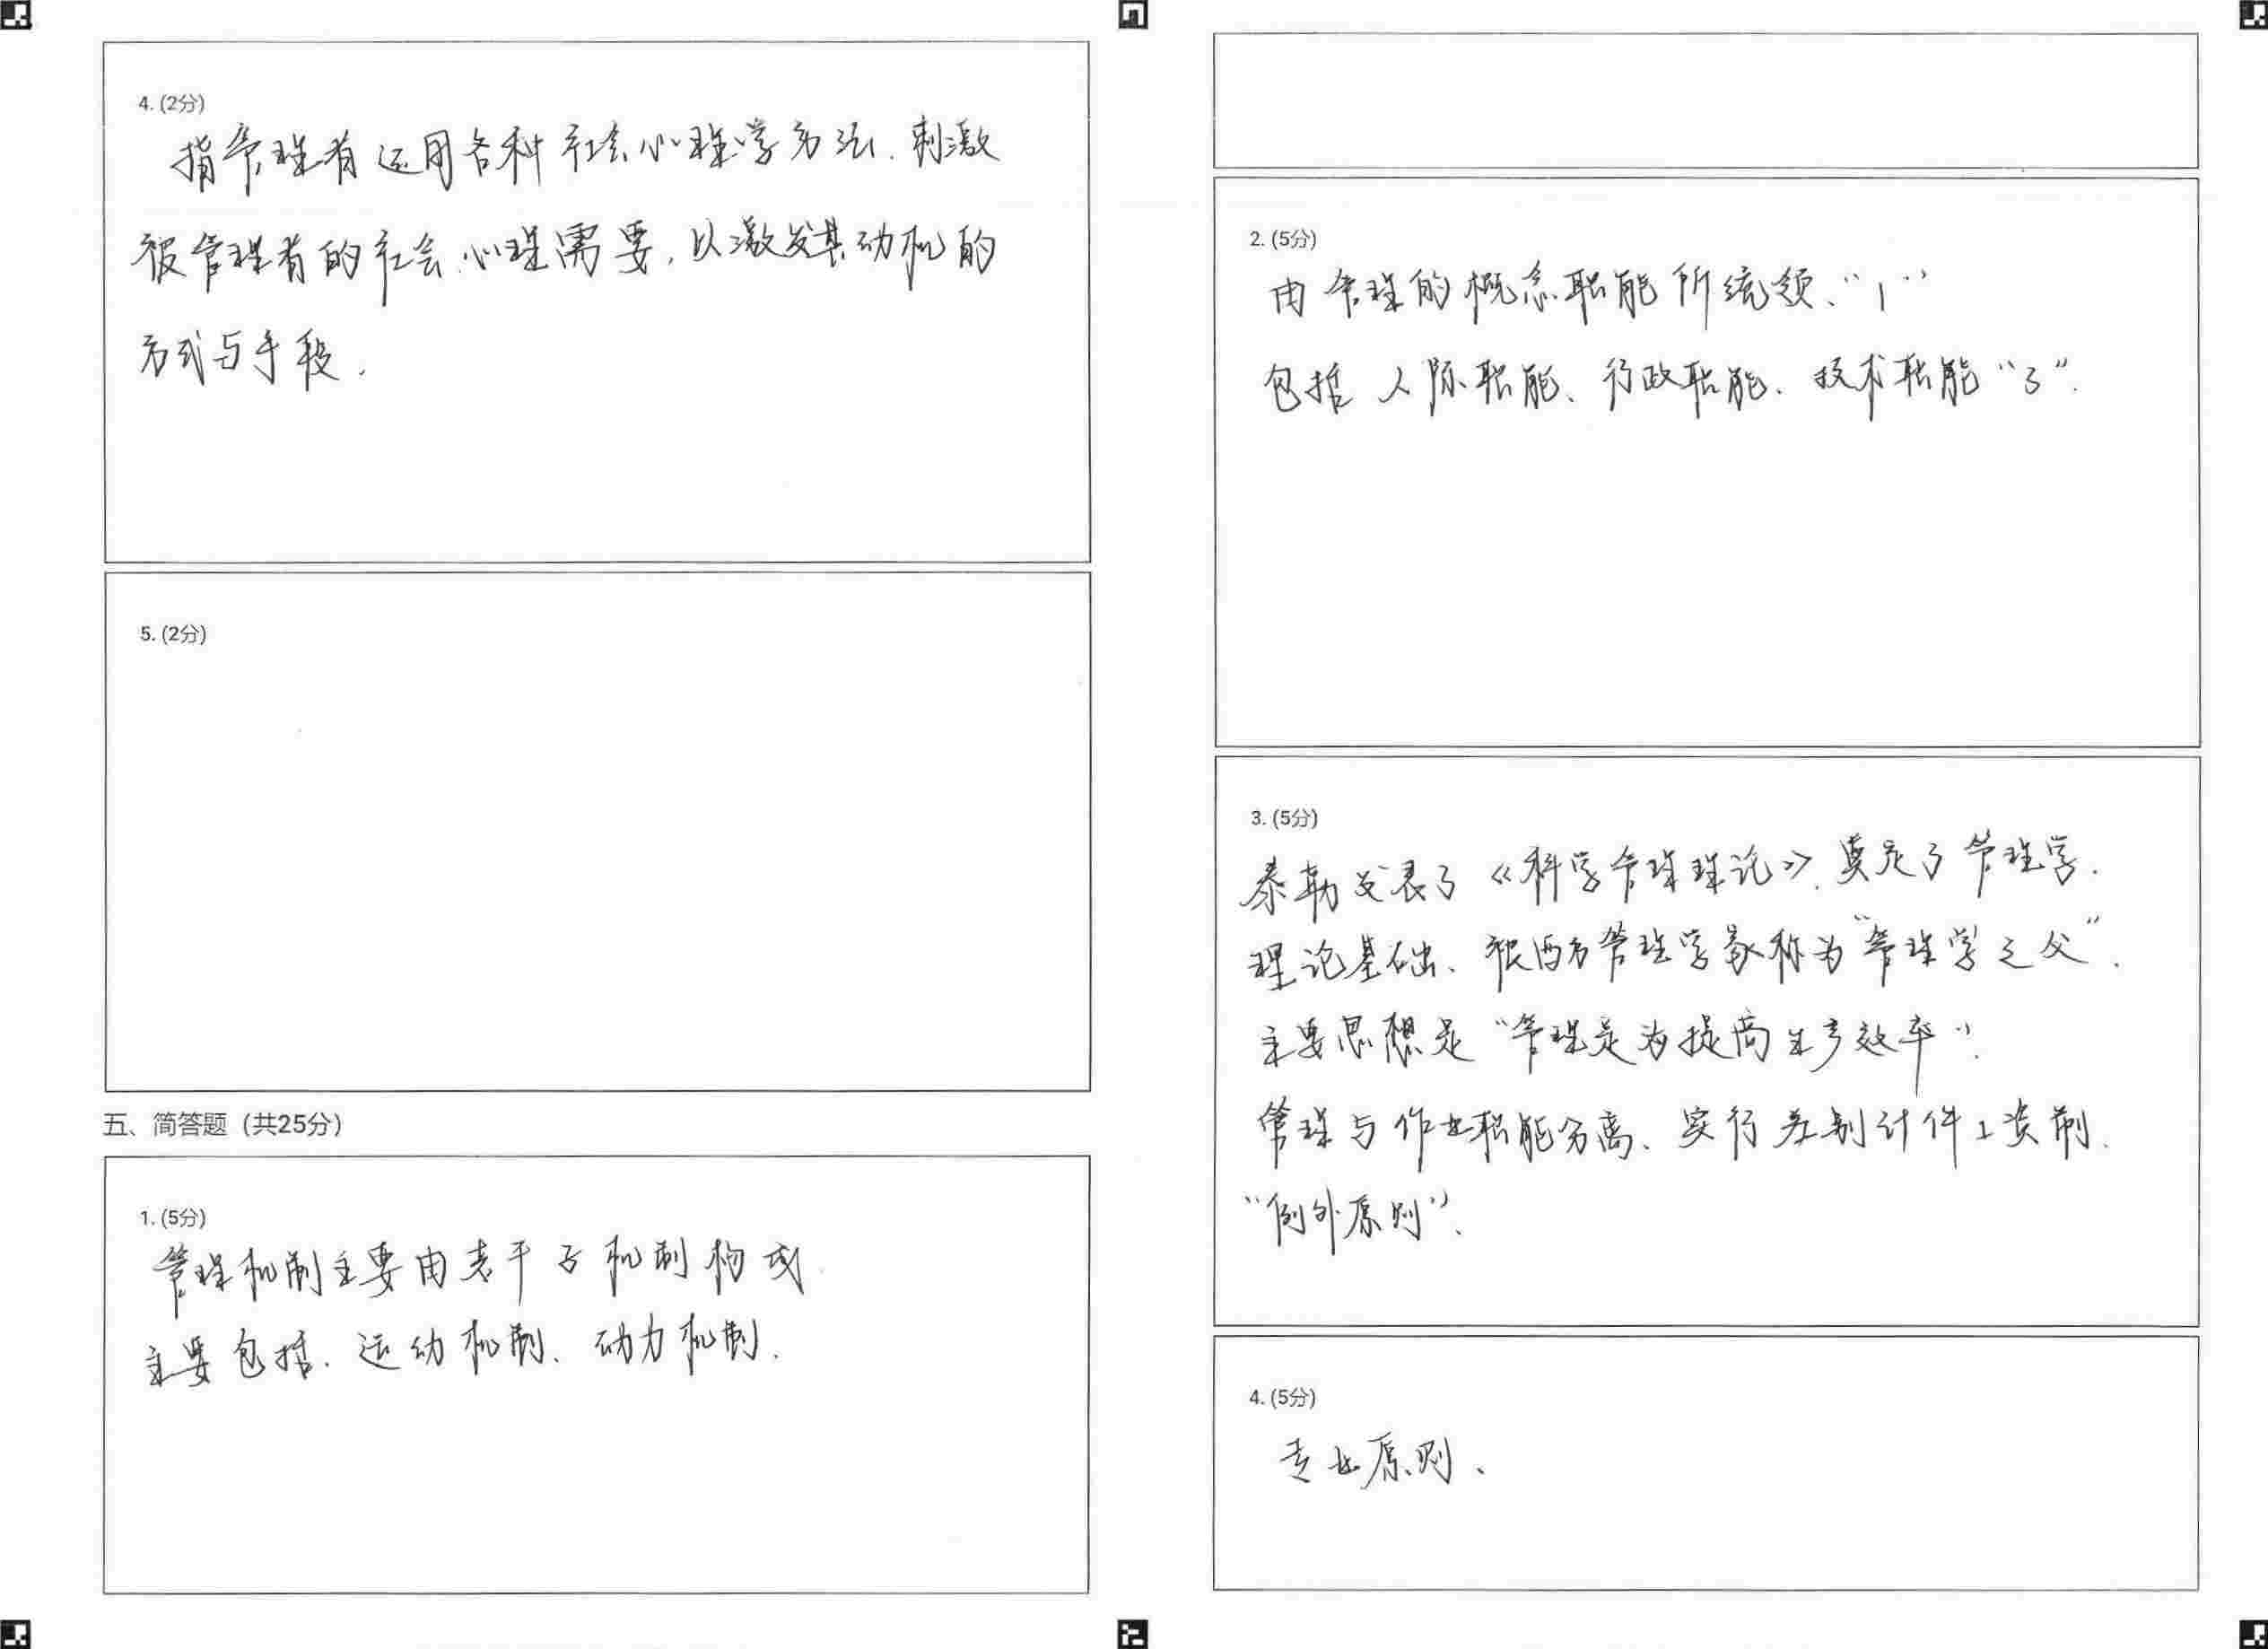 4. (2分)
指管理者运用各种社会心理学方法.刺激
被管理者的社会心理需要,以激发其动机的
方式与手段.
5. (2分)
五、简答题（共25分）
1. (5分)
管理机制主要由若干子机制构成
主要包括.运动机制、动力机制.
2. (5分)
由管理的概念职能所统领、“1”
包括人际职能、行政职能、技术职能“3”.
3. (5分)
泰勒发表了《科学管理理论》.奠定了管理学.
理论基础、被西方管理学家称为“管理学之父”.
主要思想是“管理是为提高生产效率”.
管理与作业职能分离、实行差别计件工资制.
“例外原则”.
4. (5分)
专业原则、